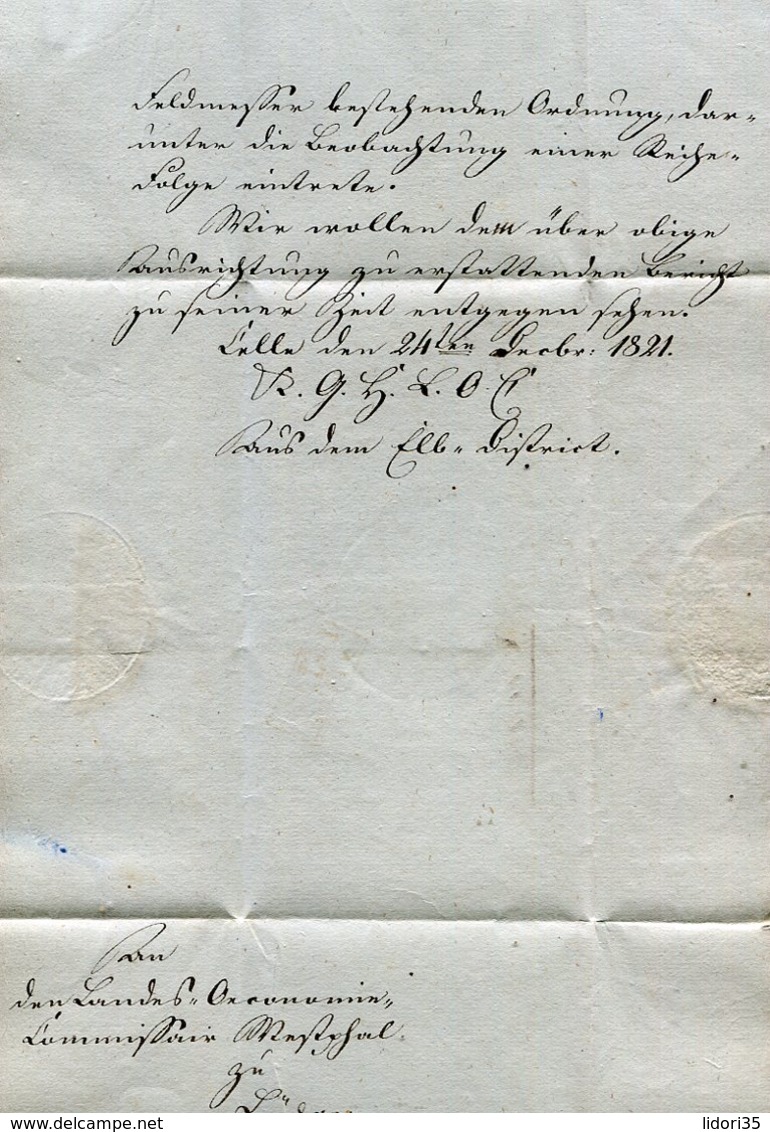 Feldmesser bestehenden Ordnung, dar-
unter die Beobachtung einer Reihe-
Folge eintrete.
Wir wollen dem über obige
Ausrichtung zu erstattenden Bericht
zu seiner Zeit entgegen sehen.
Celle den 24ten Decbr: 1821.
K. G. H. L. O. C
Aus dem Elb- District.
An
den Landes- Oeconomie-
Commissair Westphal
zu
www.delcampe.net
lidori35